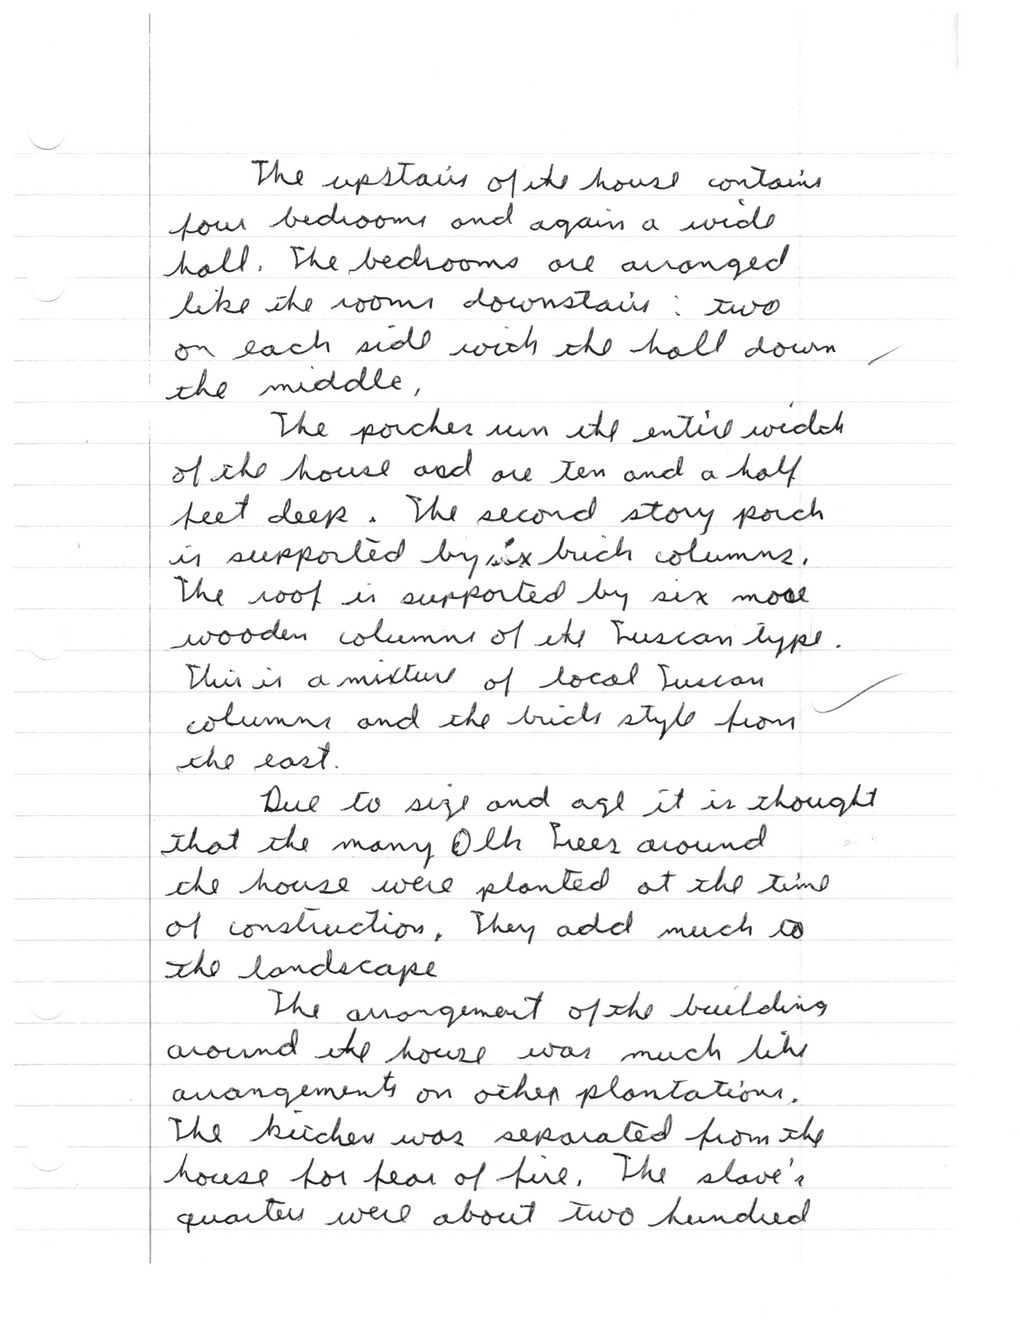 The upstairs of the house contains
four bedrooms and again a wide
hall. The bedrooms are arranged
like the rooms downstairs: two
on each side with the hall down
the middle,
The porches run the entire width
of the house and are ten and a half
feet deep. The second story porch
is supported by six brick columns.
The roof is supported by six more
wooden columns of the Tuscan type.
This is a mixture of local Tuscan
columns and the brick style from
the east.
Due to size and age it is thought
that the many Oak Trees around
the house were planted at the time
of construction. They add much to
the landscape
The arrangement of the building
around the house was much like
arrangements on other plantations.
The kitchen was separated from the
house for fear of fire. The slave's
quarters were about two hundred